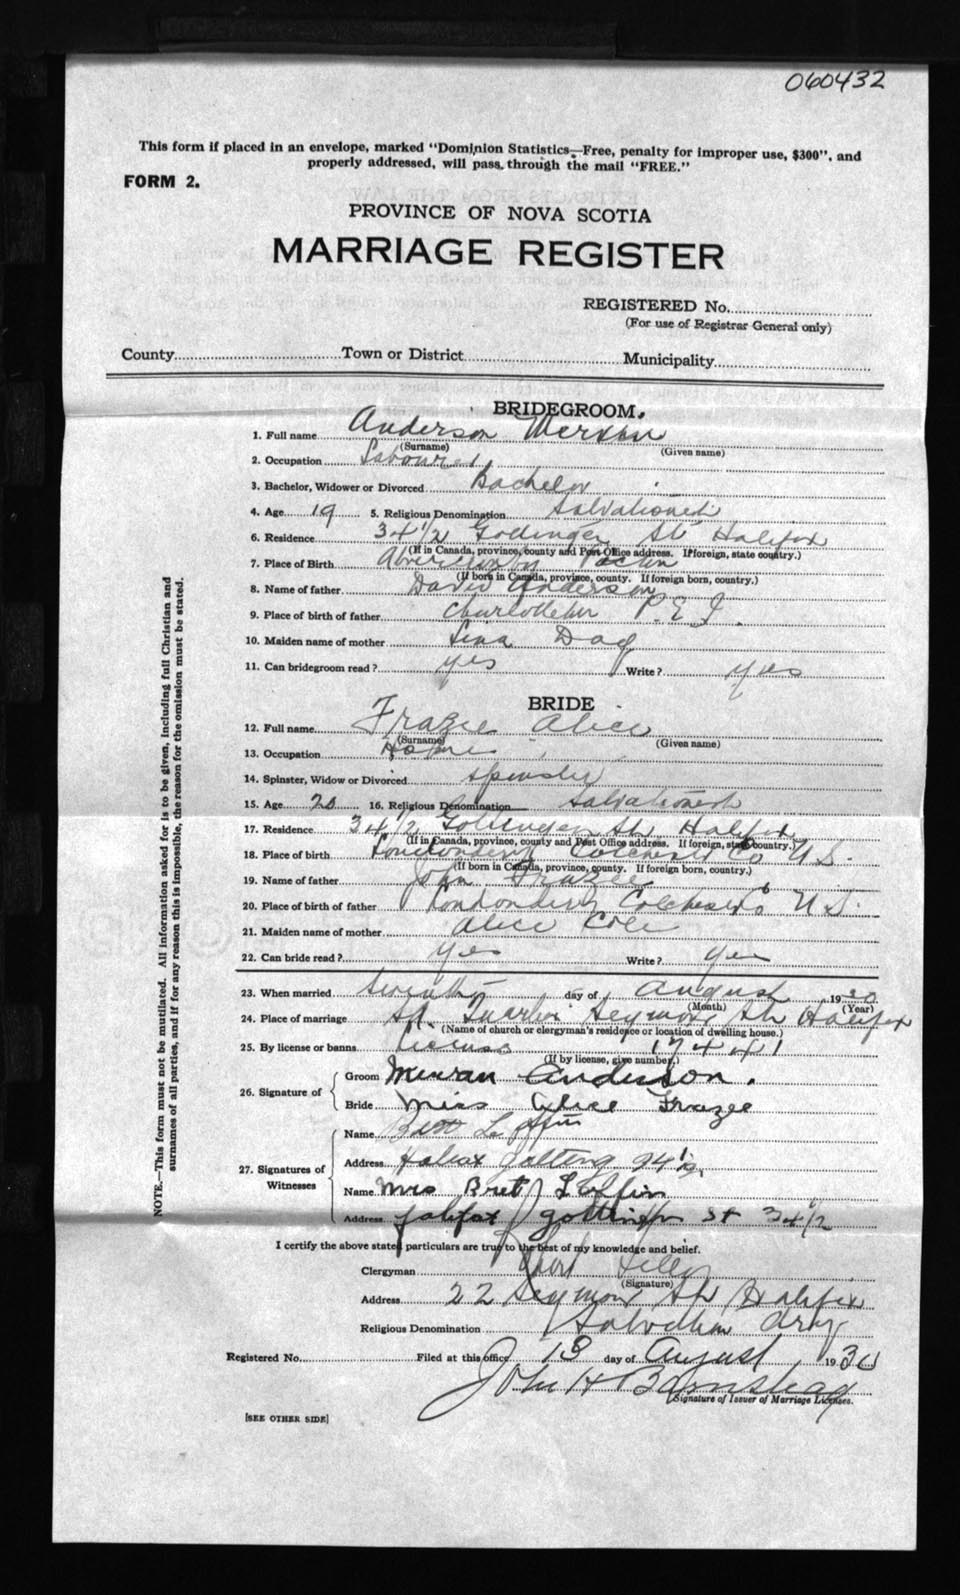 060432
This form if placed in an envelope, marked "Dominion Statistics—Free, penalty for improper use, $300", and
properly addressed, will pass through the mail "FREE."
FORM 2.
PROVINCE OF NOVA SCOTIA
MARRIAGE REGISTER
REGISTERED No.
(For use of Registrar General only)
County Town or District Municipality
BRIDEGROOM.
1. Full name Anderson
(Surname) (Given name)
2. Occupation Labourer
3. Bachelor, Widower or Divorced Bachelor
4. Age 19 5. Religious Denomination Salvationest
6. Residence 34 1/2 St Halifax
(If in Canada, province, county and Post Office address. If foreign, state country.)
7. Place of Birth
(If born in Canada, province, county. If foreign born, country.)
8. Name of father David Anderson
9. Place of birth of father P.E.I.
10. Maiden name of mother
11. Can bridegroom read? yes Write? yes
BRIDE
12. Full name Frazee Alice
(Surname) (Given name)
13. Occupation Home
14. Spinster, Widow or Divorced Spinster
15. Age 20 16. Religious Denomination Salvationest
17. Residence 34 1/2 St Halifax
(If in Canada, province, county and Post Office address. If foreign, state country.)
18. Place of birth Londonderry Colchester Co N.S.
(If born in Canada, province, county. If foreign born, country.)
19. Name of father John Frazee
20. Place of birth of father Londonderry Colchester Co N.S.
21. Maiden name of mother Alice Cole
22. Can bride read? yes Write? yes
23. When married Seventh day of August 1930
(Month) (Year)
24. Place of marriage Seymour St Halifax
(Name of church or clergyman's residence or location of dwelling house.)
25. By license or banns License 17441
(If by license, give number.)
26. Signature of Groom Anderson.
Bride Miss Alice Frazee
27. Signatures of Witnesses
Name
Address 34 1/2
Name Mrs Bret Loffin
Address Halifax St 34 1/2
I certify the above stated particulars are true to the best of my knowledge and belief.
Clergyman
(Signature)
Address 22 Seymour St Halifax
Religious Denomination Salvation Army
Registered No. Filed at this office 13 day of August 1930
John H Barnstead
Signature of Issuer of Marriage Licenses.
[SEE OTHER SIDE]
NOTE.—This form must not be mutilated. All information asked for is to be given, including full Christian and
surnames of all parties, and if for any reason this is impossible, the reason for the omission must be stated.